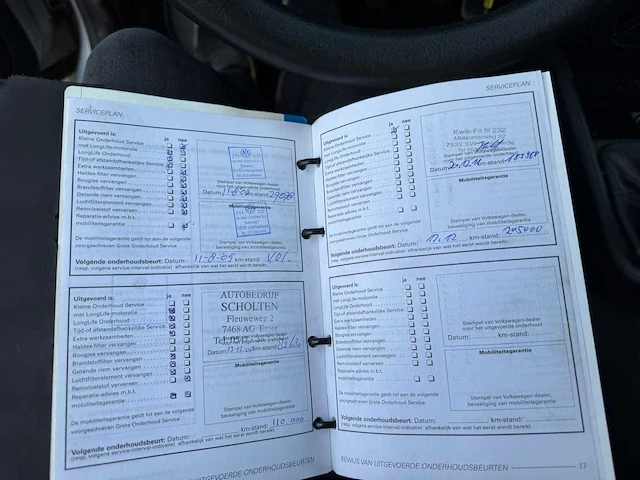 SERVICEPLAN
Uitgevoerd is: ja nee
Kleine Onderhoud Service
met LongLife-motorolie
LongLife Onderhoud
Tijd-of afstandafhankelijke Service
Extra werkzaamheden
Haldex-filter vervangen
Bougies vervangen
Brandstoffilter vervangen
Getande riem vervangen
Luchtfilterelement vervangen
Remvloeistof verversen
Reparatie-advies m.b.t.
mobiliteitsgarantie
Datum: 11-8-07 km-stand:
Mobiliteitsgarantie
Stempel van Volkswagen-dealer
bevestiging van mobiliteitsgarantie
De mobiliteitsgarantie geldt tot aan de volgende
voorgeschreven Grote Onderhoud Service
Volgende onderhoudsbeurt: Datum: 11-8-09 km-stand: VOL.
(resp. volgens service-interval-indicatie) afhankelijk van wat het eerst wordt bereikt.
Uitgevoerd is: ja nee
Kleine Onderhoud Service
met LongLife-motorolie
LongLife Onderhoud
Tijd-of afstandafhankelijke Service
Extra werkzaamheden
Haldex-filter vervangen
Bougies vervangen
Brandstoffilter vervangen
Getande riem vervangen
Luchtfilterelement vervangen
Remvloeistof verversen
Reparatie-advies m.b.t.
mobiliteitsgarantie
AUTOBEDRIJF
SCHOLTEN
Fleuweweg 2
7468 AG Enter
Datum: km-stand:
Mobiliteitsgarantie
Stempel van Volkswagen-dealer,
bevestiging van mobiliteitsgarantie
De mobiliteitsgarantie geldt tot aan de volgende
voorgeschreven Grote Onderhoud Service
Volgende onderhoudsbeurt: Datum: km-stand: 110.000
(resp. volgens service-interval-indicatie) afhankelijk van wat het eerst wordt bereikt.
BEWIJS VAN UITGEVOERDE ONDERHOUDSBEURTEN
SERVICEPLAN
Uitgevoerd is: ja nee
Kleine Onderhoud Service
met LongLife-motorolie
LongLife Onderhoud
Tijd-of afstandafhankelijke Service
Extra werkzaamheden
Haldex-filter vervangen
Bougies vervangen
Brandstoffilter vervangen
Getande riem vervangen
Luchtfilterelement vervangen
Remvloeistof verversen
Reparatie-advies m.b.t.
mobiliteitsgarantie
Kwik-Fit Nl 232
Datum: km-stand:
Mobiliteitsgarantie
Stempel van Volkswagen-dealer,
bevestiging van mobiliteitsgarantie
De mobiliteitsgarantie geldt tot aan de volgende
voorgeschreven Grote Onderhoud Service
Volgende onderhoudsbeurt: Datum: 12.12 km-stand: 205000
(resp. volgens service-interval-indicatie) afhankelijk van wat het eerst wordt bereikt.
Uitgevoerd is: ja nee
Kleine Onderhoud Service
met LongLife-motorolie
LongLife Onderhoud
Tijd-of afstandafhankelijke Service
Extra werkzaamheden
Haldex-filter vervangen
Bougies vervangen
Brandstoffilter vervangen
Getande riem vervangen
Luchtfilterelement vervangen
Remvloeistof verversen
Reparatie-advies m.b.t.
mobiliteitsgarantie
Stempel van Volkswagen-dealer
voor het uitgevoerde onderhoud
Datum: km-stand:
Mobiliteitsgarantie
Stempel van Volkswagen-dealer,
bevestiging van mobiliteitsgarantie
De mobiliteitsgarantie geldt tot aan de volgende
voorgeschreven Grote Onderhoud Service
Volgende onderhoudsbeurt: Datum: km-stand:
(resp. volgens service-interval-indicatie) afhankelijk van wat het eerst wordt bereikt.
BEWIJS VAN UITGEVOERDE ONDERHOUDSBEURTEN 17